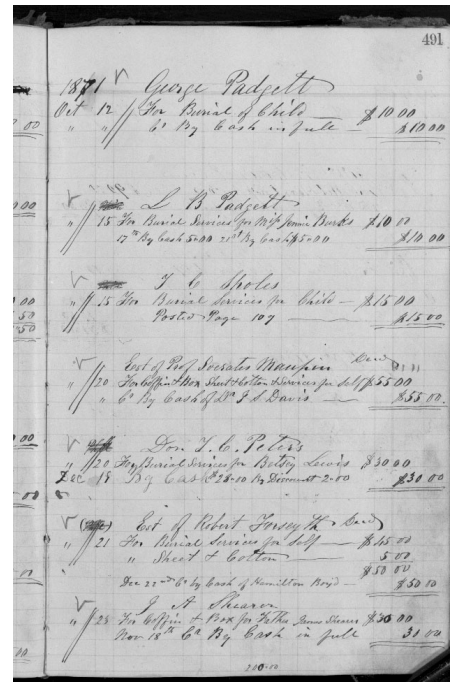 491
1871 George Padgett
Oct 12 For Burial of Child $10.00
" " Cr By Cash in full — $10.00
L B Padgett
" 15 For Burial Services for Miss Jennie Burks $10 00
17th By Cash 5.00 21st By Cash $5.00 $10 00
T C Sholes
" 15 For Burial Services for Child — $15.00
Posted Page 107 — $15.00
Est of Prof Socrates Maupin Decd
" 20 For Coffin & Box Sheet & Cotton & Services for Self $55.00
" Cr By Cash of Dr J S Davis — $55.00
Don T. C. Peters
" 20 For Burial Services for Betsey Lewis $30 00
Dec 18 By Cash $28.00 By Discount 2.00 $30 00
Est of Robert Forsyth Decd
" 21 For Burial Services for Self — $45.00
" Sheet & Cotton 5 00
$50 00
Dec 22nd Cr by Cash of Hamilton Boyd — $50 00
J A Shearer
" 23 For Coffin & Box for Father James $30 00
Nov 18th Cr By Cash in full 30 00